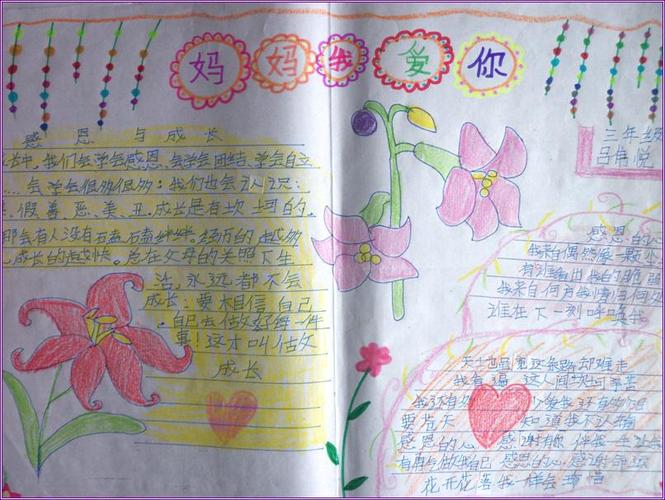 妈妈我爱你
感恩与成长
中,我们会学会感恩,会学会团结,学会自立
会学会很多很多;我们也会认识:
假、善、恶、美、丑。成长是有坎坷的,
那会有人没有磕磕绊绊。经历的越多
成长的越快。总在父母的关照下生
活,永远都不会
成长;要相信自己,
自己去做好每一件
事!这才叫做
成长
三年级
吕伟悦
感恩的心
我来自偶然像一颗
有谁看出我的脆弱
我来自何方我情归何处
谁在下一刻呼唤我
天地虽宽这条路却难走
我看遍这人间坎坷辛苦
我还有多少爱我还有多少泪
要苍天知道我不认输
感恩的心感谢有你伴我一生
有勇气做我自己感恩的心感谢命运
花开花落我一样会珍惜